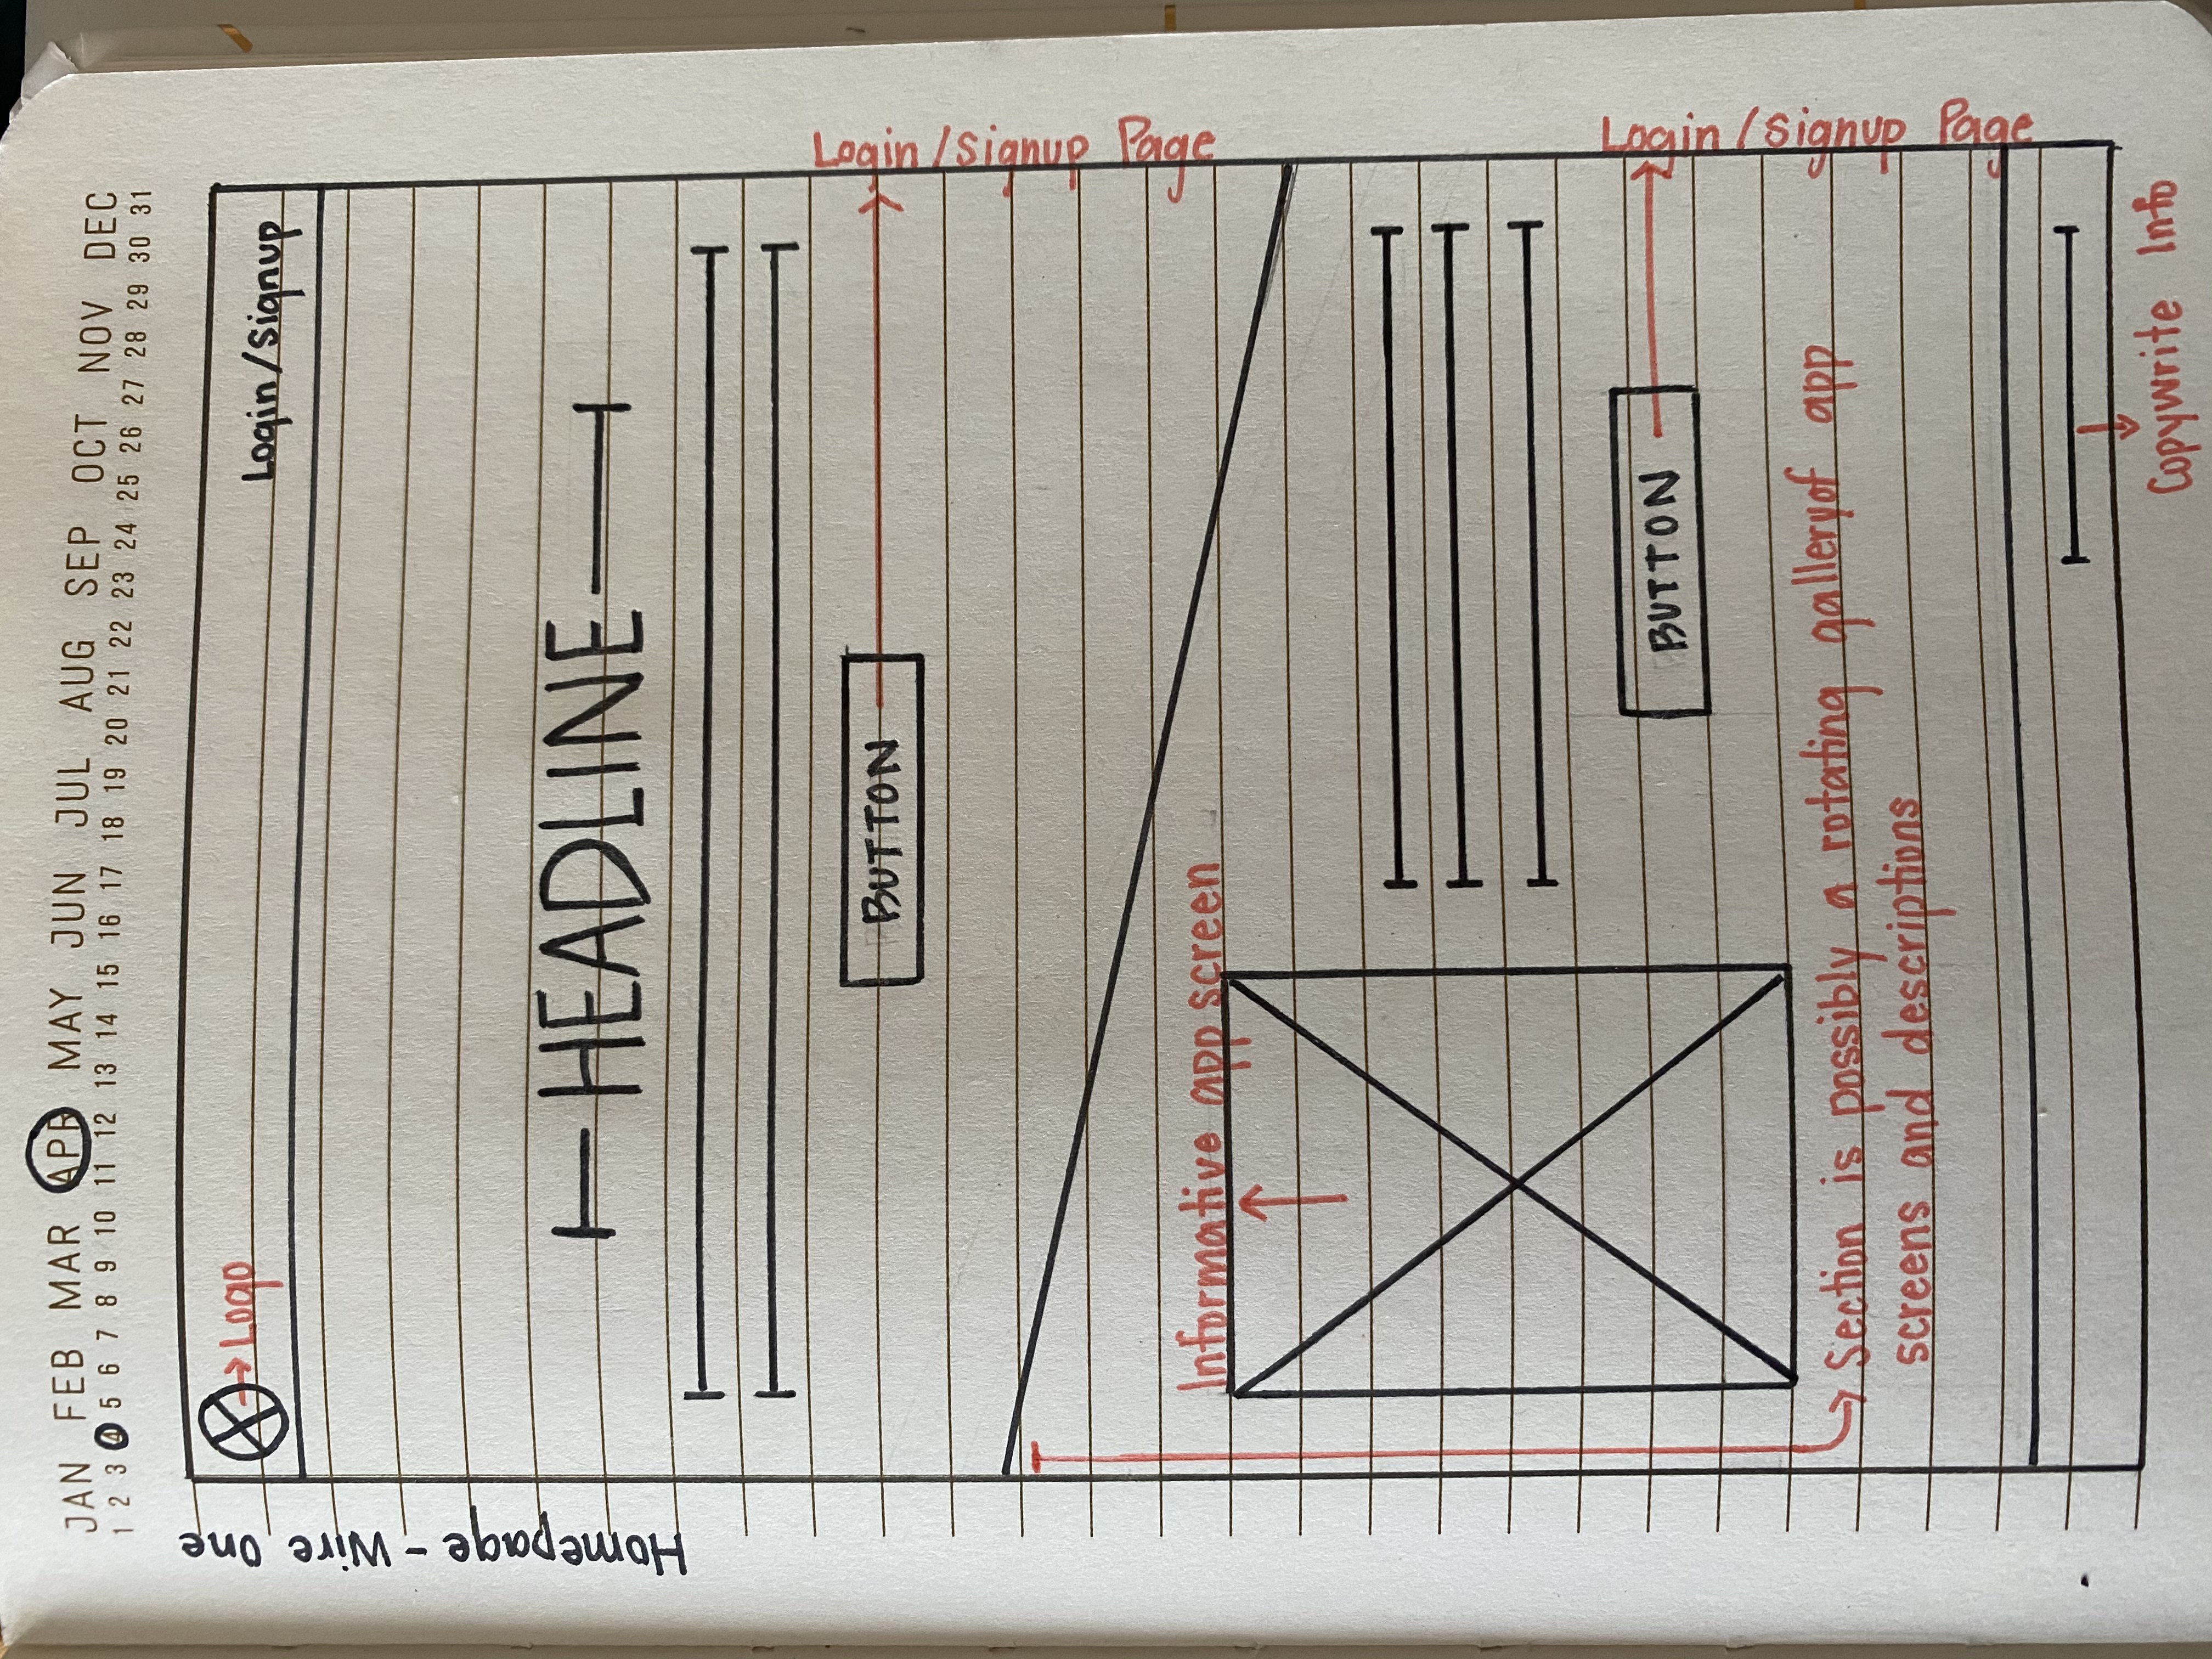 JAN FEB MAR APR MAY JUN JUL AUG SEP OCT NOV DEC
1 2 3 4 5 6 7 8 9 10 11 12 13 14 15 16 17 18 19 20 21 22 23 24 25 26 27 28 29 30 31
Homepage - Wire One
Logo
Login/Signup
HEADLINE
BUTTON
Login/Signup Page
Informative app screen
BUTTON
Login/Signup Page
Section is possibly a rotating gallery of app
screens and descriptions
Copywrite Info